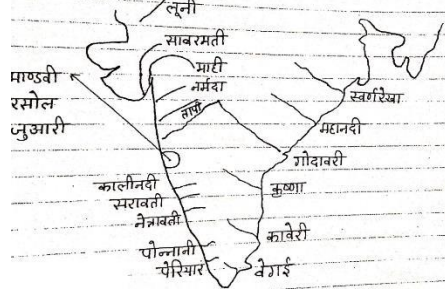 लूनी
साबरमती
माही
नर्मदा
ताप्ती
माण्डवी
रसोल
जुआरी
स्वर्णरेखा
महानदी
गोदावरी
कृष्णा
कालीनदी
सरावती
नेत्रावती
कावेरी
पोन्नानी
पेरियार
वेगई